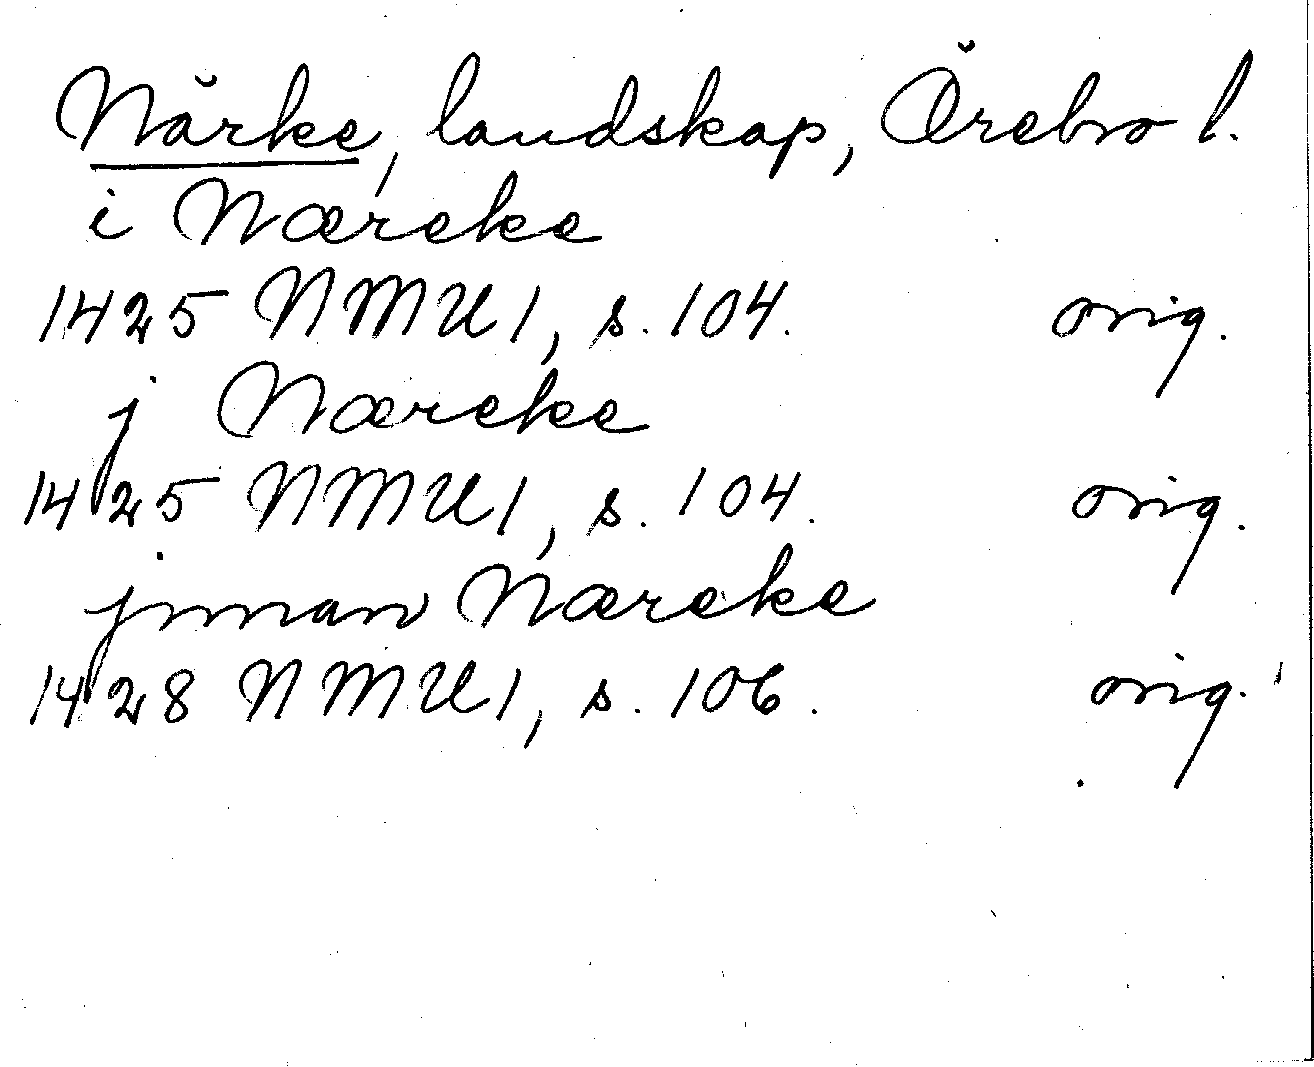 Närke, landskap, Örebro l.
i Næreke
1425 NMU1, s. 104. orig.
j Næreke
1425 NMU1, s. 104. orig.
jnnan Næreke
1428 NMU1, s. 106. orig.